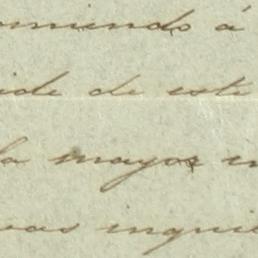 omiendo á
ide de este
la mayor in
vas inquie